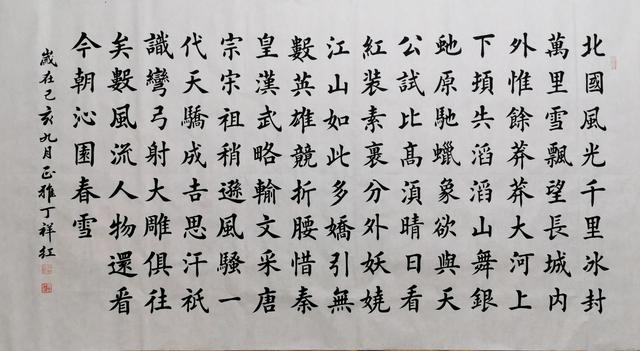 北國風光千里冰封
萬里雪飄望長城内
外惟餘莽莽大河上
下頓失滔滔山舞銀
虵原馳蠟象欲與天
公試比髙湏晴日看
紅装素裹分外妖嬈
江山如此多嬌引無
數英雄競折腰惜秦
皇漢武略輸文采唐
宗宋祖稍遜風騷一
代天驕成吉思汗祇
識彎弓射大雕俱往
矣數風流人物還看
今朝沁園春雪
歲在己亥九月正雅丁祥红